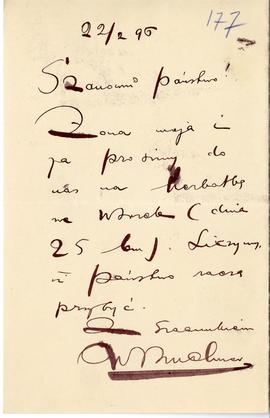 22/2 96
177
Szanowni państwo!
Żona moja i
ja prosimy do
nas na herbatkę
we wtorek (dnia
25 bm). Liczymy,
iż państwo raczą
przybyć.
Z szacunkiem